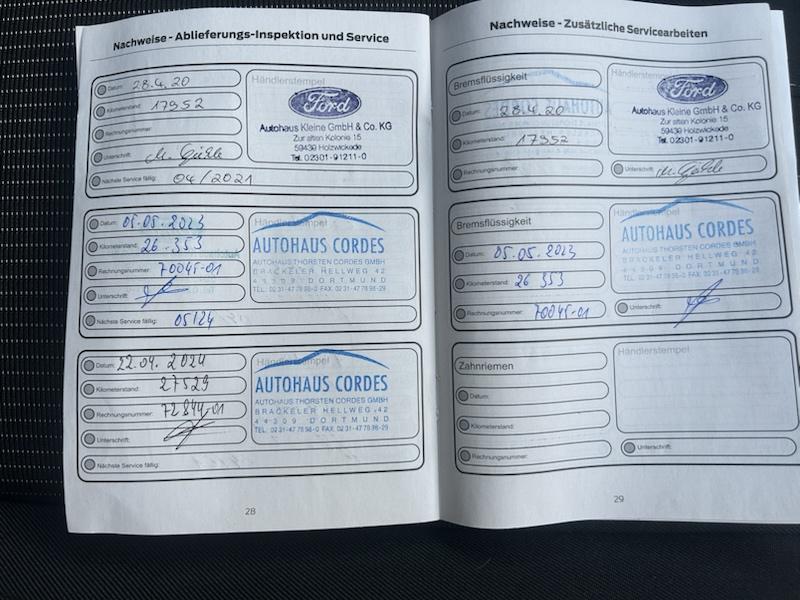 Nachweise - Ablieferungs-Inspektion und Service
Datum: 28.4.20
Kilometerstand: 17952
Rechnungsnummer:
Unterschrift:
Nächste Service fällig: 04/2021
Händlerstempel
Ford
Autohaus Kleine GmbH & Co. KG
Zur alten Kolonie 15
59439 Holzwickede
Tel. 02301-91211-0
Datum: 05.05.2023
Kilometerstand: 26.353
Rechnungsnummer: 70045-01
Unterschrift:
Nächste Service fällig: 05/24
Händlerstempel
AUTOHAUS CORDES
AUTOHAUS THORSTEN CORDES GMBH
BRACKELER HELLWEG 42
44309 DORTMUND
TEL. 02 31-47 78 98-0 FAX. 02 31-47 78 98-29
Datum: 22.04.2024
Kilometerstand: 27529
Rechnungsnummer: 72844-01
Unterschrift:
Nächste Service fällig:
Händlerstempel
AUTOHAUS CORDES
AUTOHAUS THORSTEN CORDES GMBH
BRACKELER HELLWEG 42
44309 DORTMUND
TEL. 02 31-47 78 98-0 FAX. 02 31-47 78 98-29
28
Nachweise - Zusätzliche Servicearbeiten
Bremsflüssigkeit
Datum: 28.4.20
Kilometerstand: 17952
Rechnungsnummer:
Händlerstempel
Ford
Autohaus Kleine GmbH & Co. KG
Zur alten Kolonie 15
59439 Holzwickede
Tel. 02301-91211-0
Unterschrift:
Bremsflüssigkeit
Datum: 05.05.2023
Kilometerstand: 26 353
Rechnungsnummer: 70045-01
Händlerstempel
AUTOHAUS CORDES
AUTOHAUS THORSTEN CORDES GMBH
BRACKELER HELLWEG 42
44309 DORTMUND
TEL. 02 31-47 78 98-0 FAX. 02 31-47 78 98-29
Unterschrift:
Zahnriemen
Datum:
Kilometerstand:
Rechnungsnummer:
Händlerstempel
Unterschrift:
29